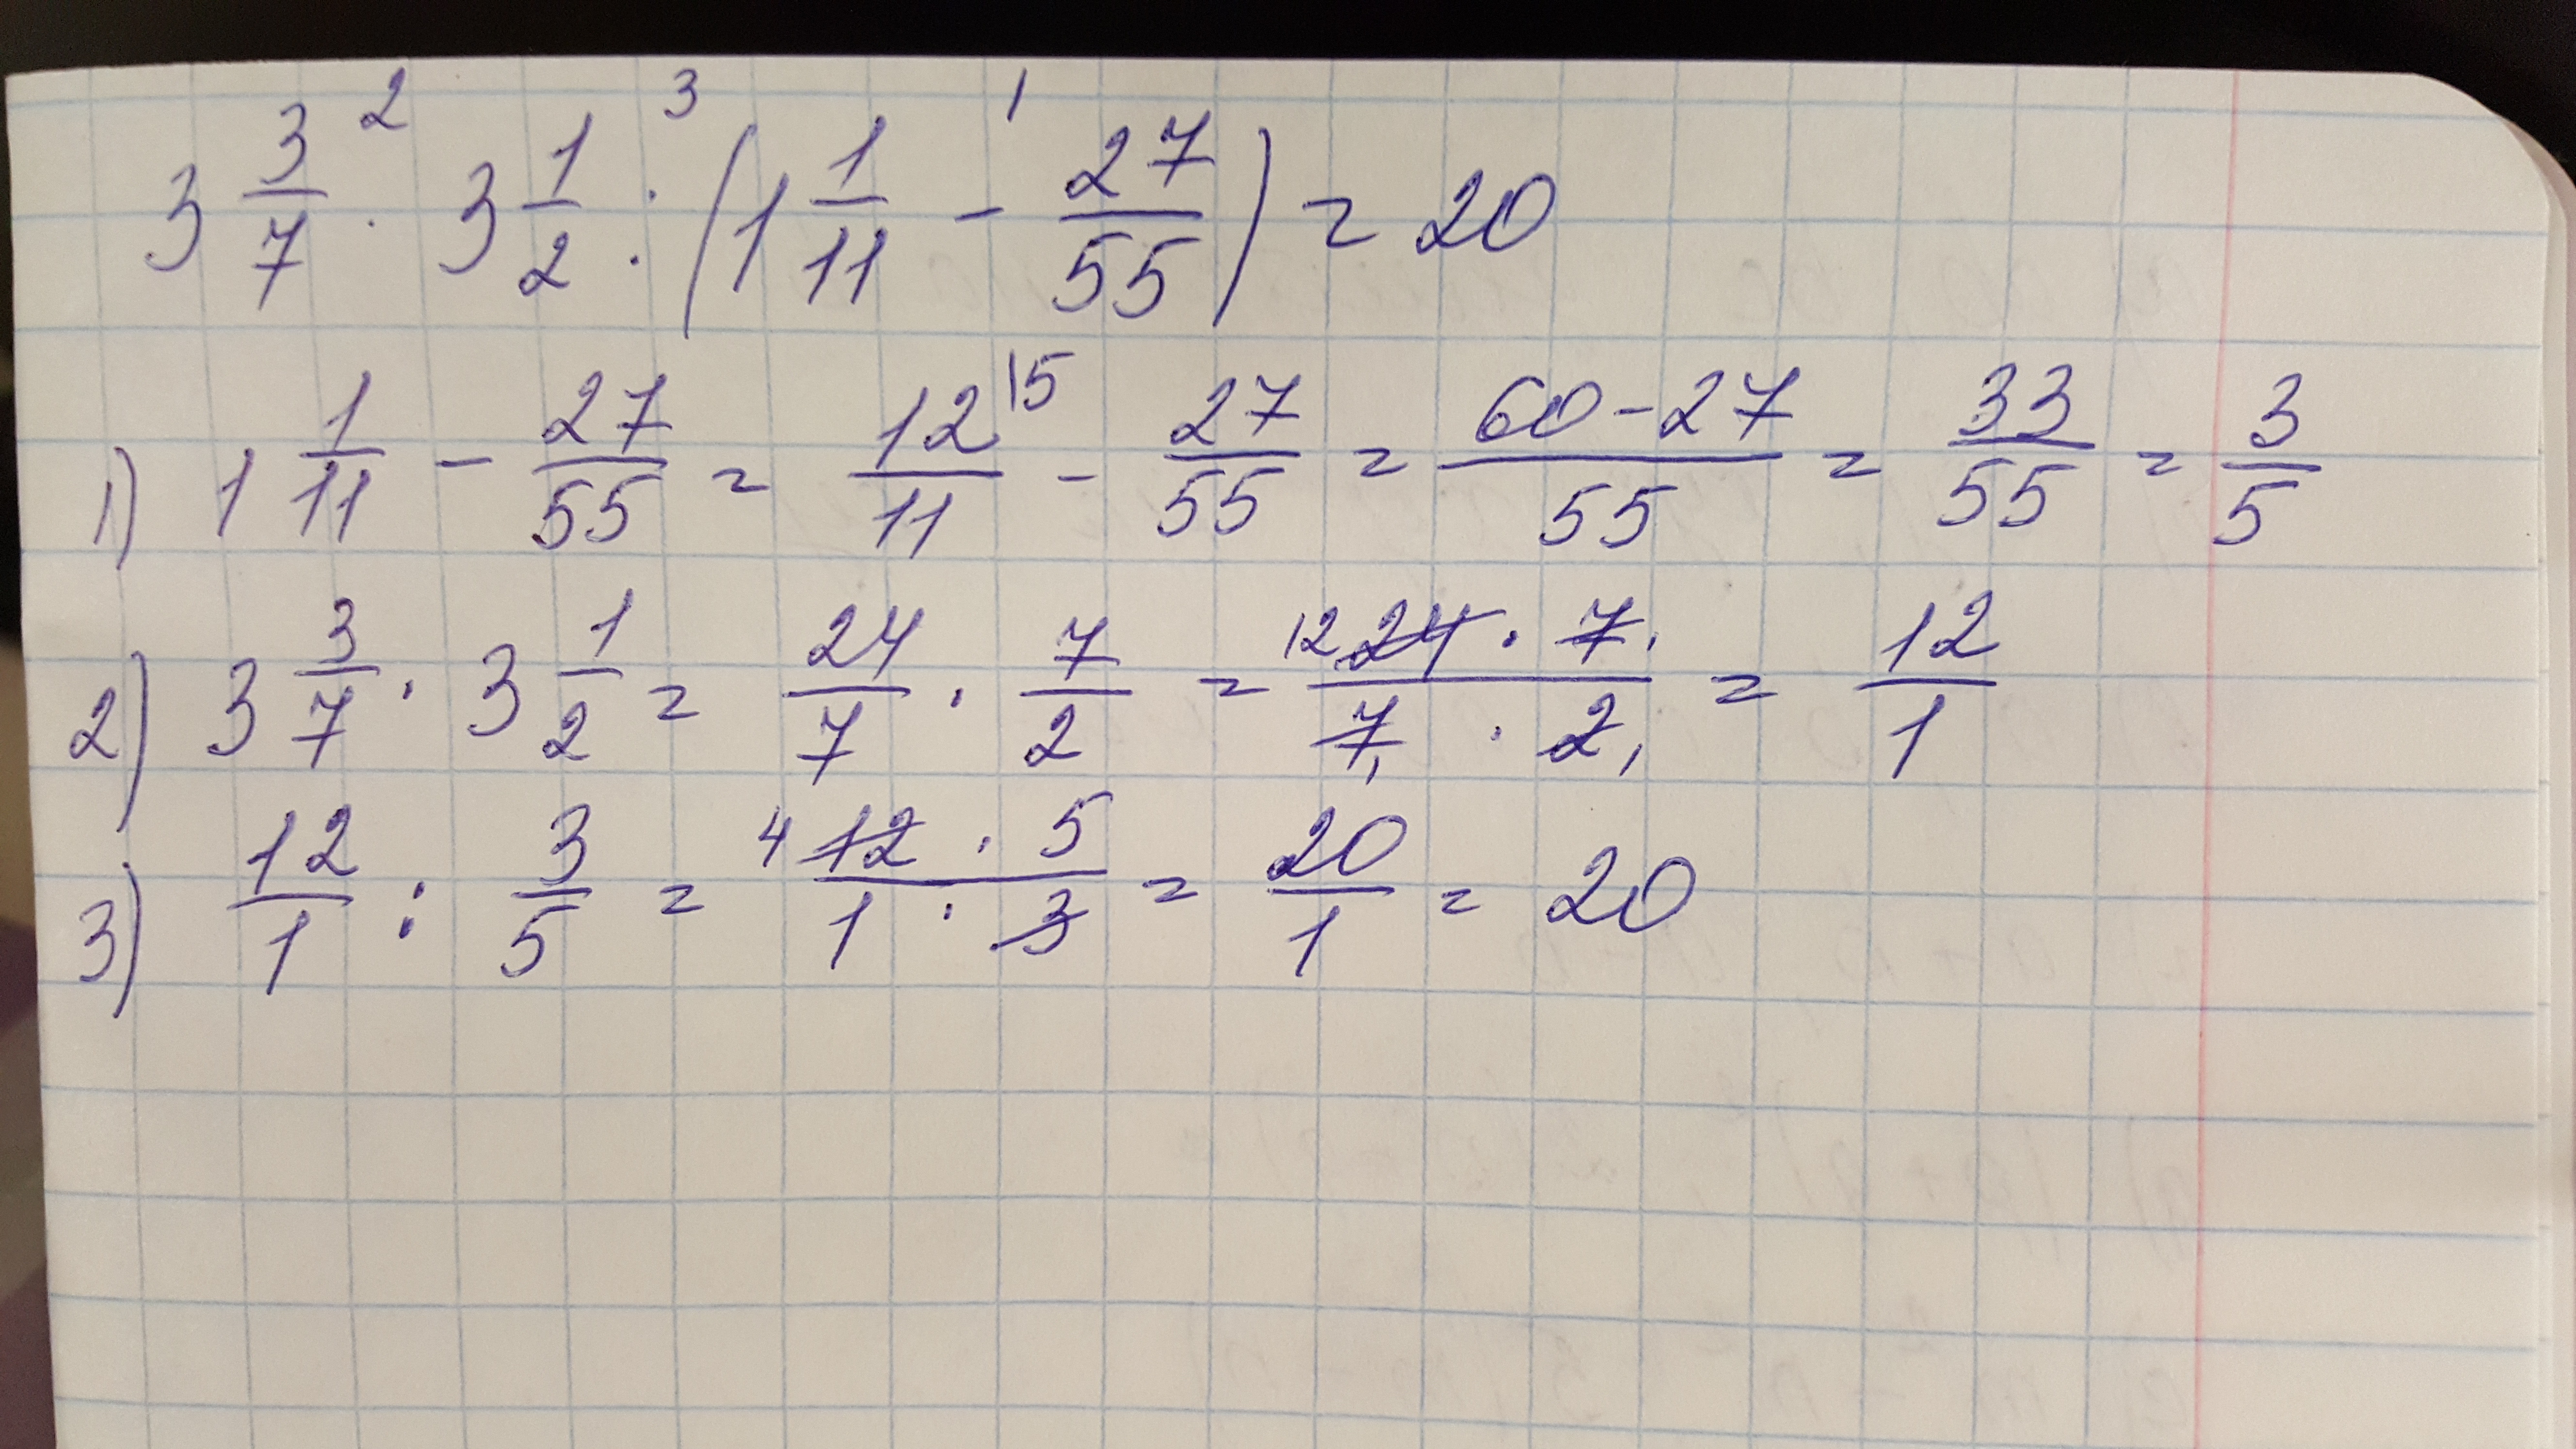 3 3/7 ·² 3 1/2 :³ (1 1/11 -¹ 27/55) = 20
1) 1 1/11 - 27/55 = 12/11 |5 - 27/55 = (60-27)/55 = 33/55 = 3/5
2) 3 3/7 · 3 1/2 = 24/7 · 7/2 = (12 24 · 7 1)/(7 1 · 2 1) = 12/1
3) 12/1 : 3/5 = (4 12 · 5)/(1 · 3) = 20/1 = 20